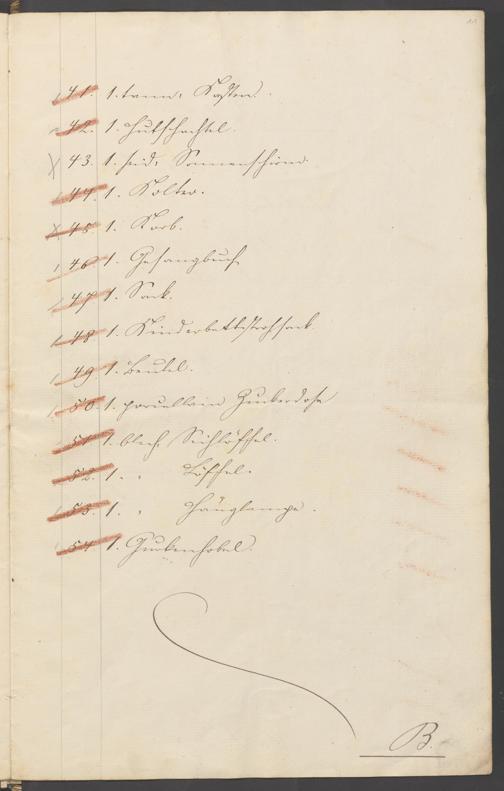 41. 1. tann: Kasten.
42. 1. Hutschachtel.
43. 1. seid: Sonnenschirm.
44. 1. Kolter.
45. 1. Korb.
46. 1. Gesangbuch
47. 1. Sack.
48. 1. Kinderbettstrohsack
49. 1. Beutel.
50. 1. porcellain Zuckerdose
51. 1. blech. Seihlöffel.
52. 1. " Löffel.
53. 1. " Hänglampe.
54. 1. Gurkenhobel.
B.